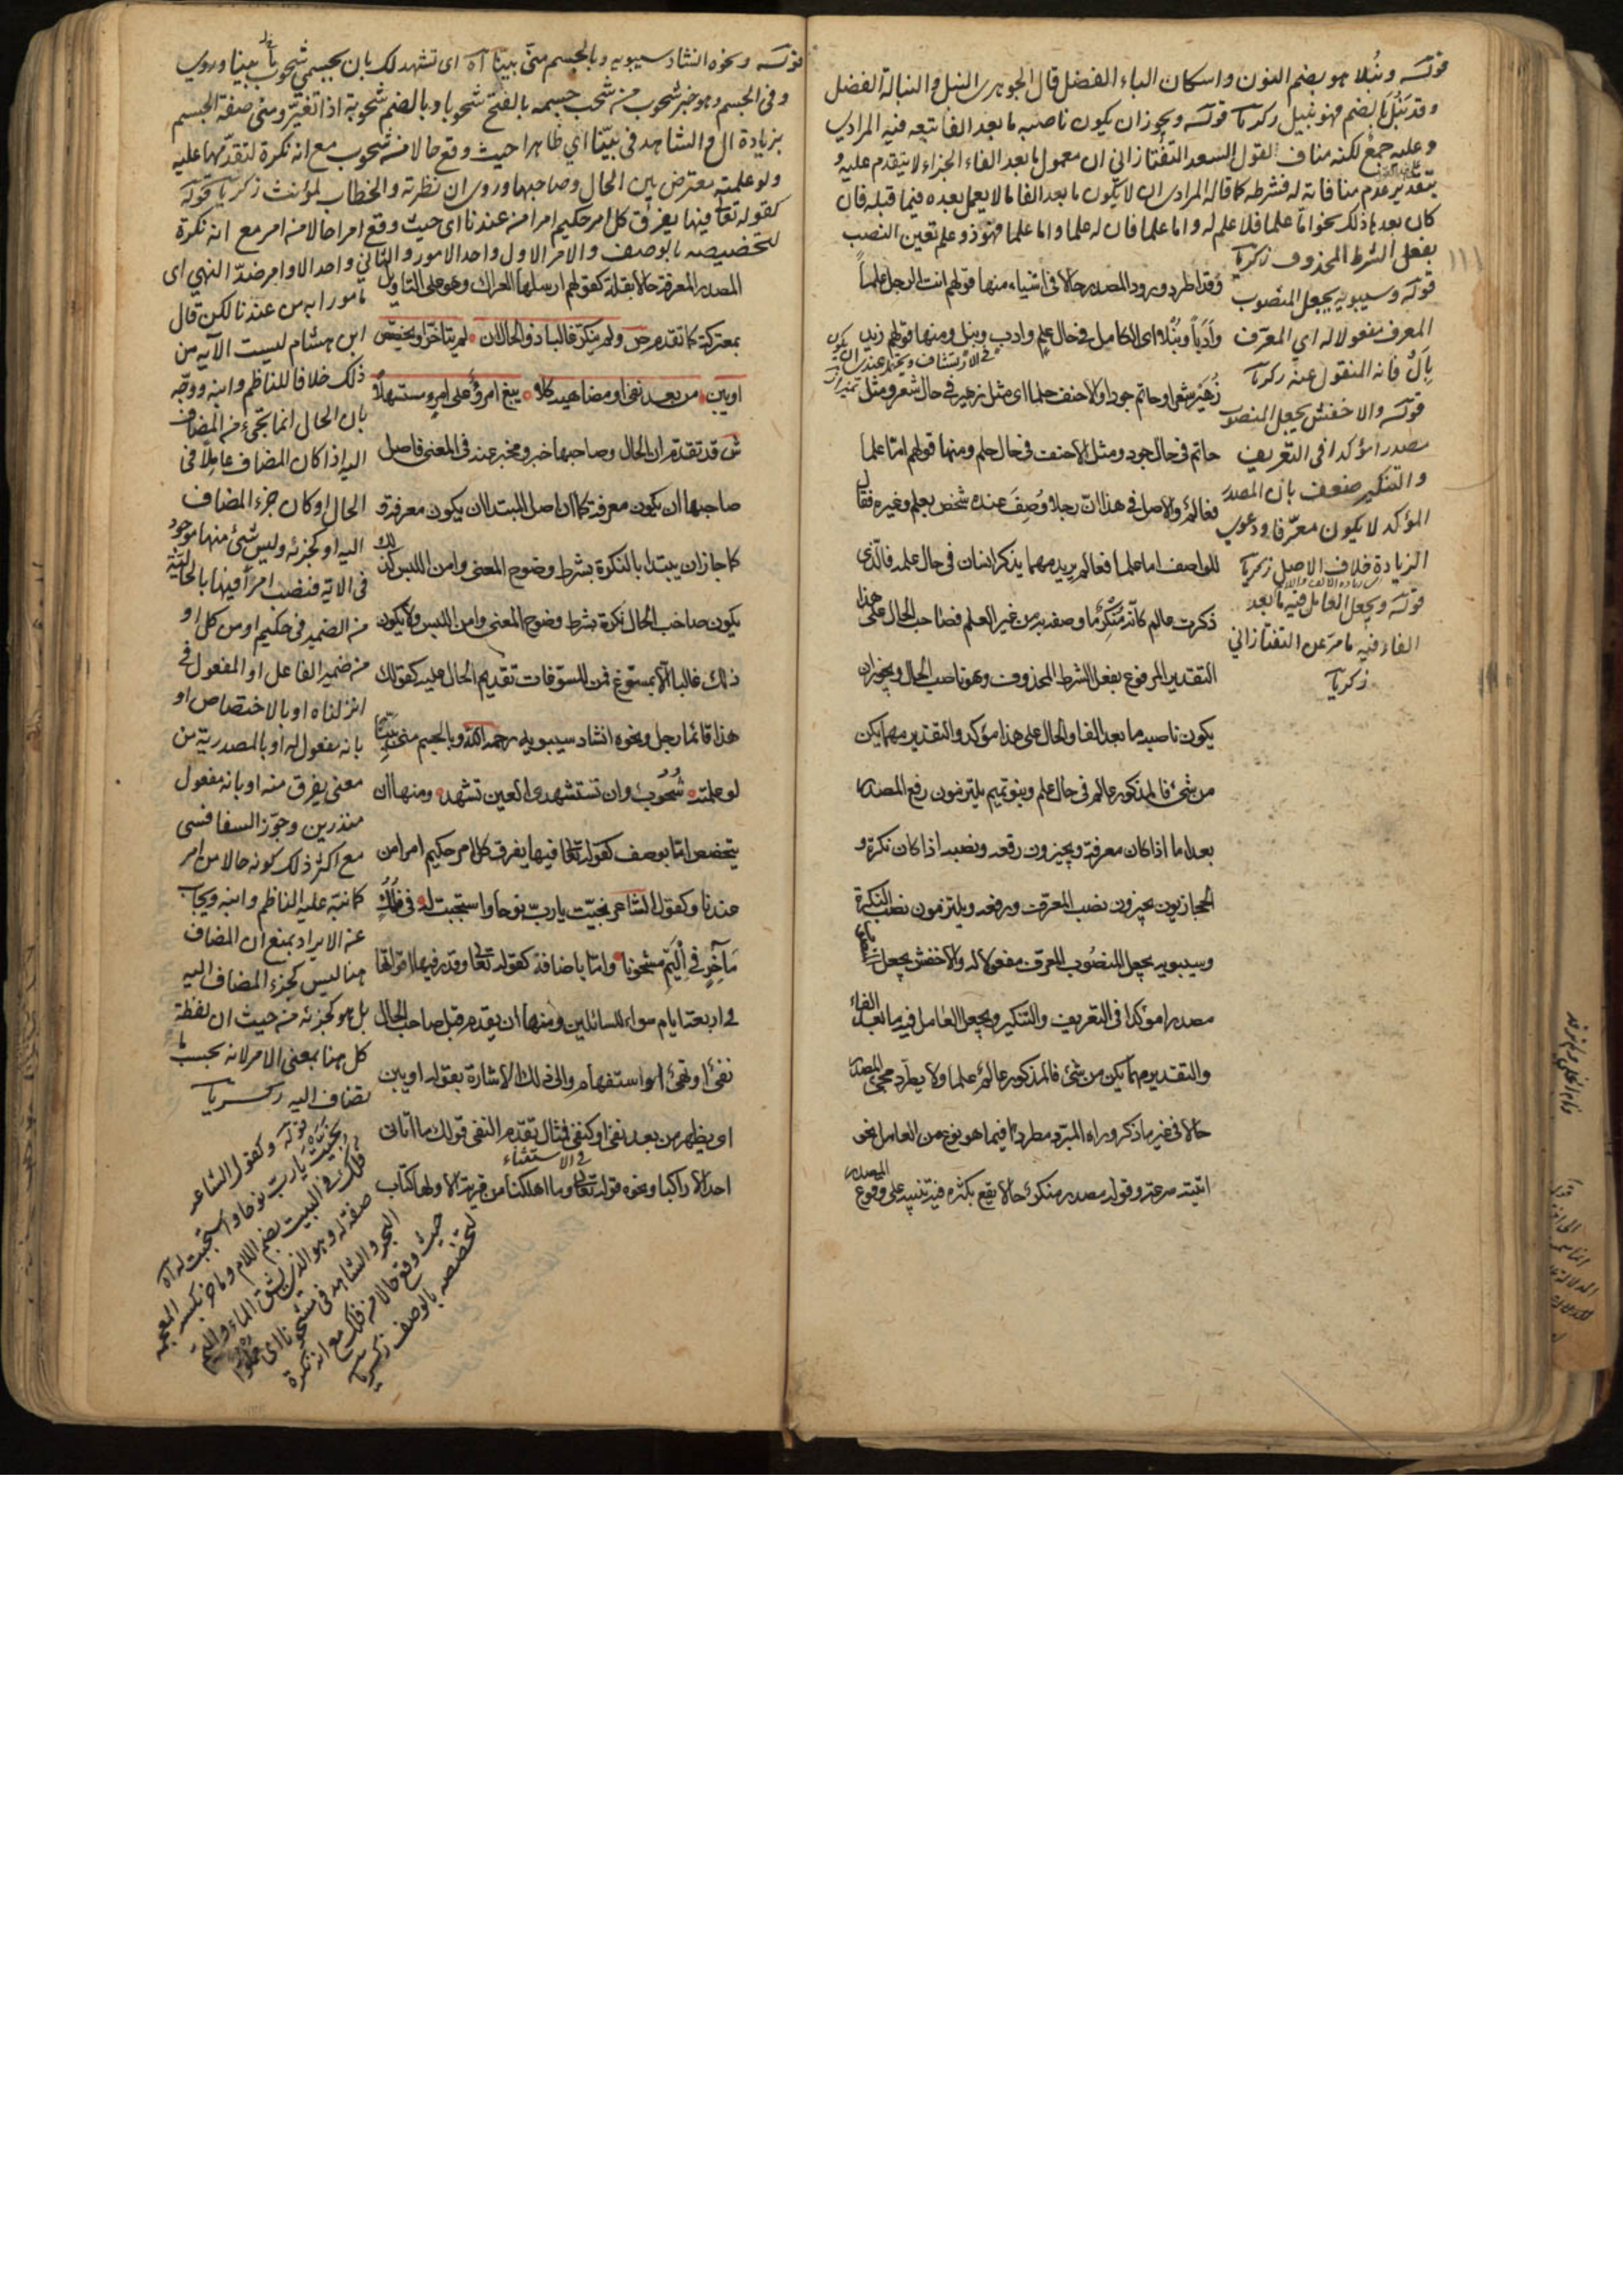 قوله ونُبلا هو بضم النون واسكان الباء الفضل قال الجوهري النبل والنبالة الفضل
وقد نَبُل بالضم فهو نبيل زكريا قوله ويجوز ان يكون ناصبه ما بعد الفا تبعه فيه المرادي
وعليه جمعٌ لكنه مناف لقول السعد التفتازاني ان معمول ما بعد الفاء الجزاء لا يتقدم عليه و
بتقدير عدم منافاته له فشرطه كما قاله المرادي ان لا يكون ما بعد الفا مالا يعمل بعده فيما قبله فان
كان بعد ما ذلك نحو اما علما فلا علم له واما علما فان له علما واما علما فهو ذو علم تعين النصب
بفعل الشرط المحذوف زكريا
قوله وسيبويه يجعل المنصوب
المعرف مفعولا له اي المعرف
بال فانه المنقول عنه زكريا
قوله والاخفش يجعل المنصوب
مصدرا مؤكدا في التعريف
والتنكير ضعف بان المصدر
المؤكد لا يكون معرفا ودعوى
الزيادة خلاف الاصل زكريا
قوله ويجعل العامل فيه ما بعد
الفاء فيه ما مر عن التفتازاني
زكريا
وقد اطرد ورود المصدر حالا في اشياء منها قولهم انت الرجل علماً
وأدباً ونُبلا اي الكامل في حال علم وادب ونبل ومنها قولهم زيد
زُهَيْر شعرا وحاتم جودا والاحنف حلما اي مثل زهير في حال شعر ومثل
حاتم في حال جود ومثل الاحنف في حال حلم ومنها قولهم اما علما
فعالم والاصل في هذا ان رجلا وُصِفَ عنده شخص بعلم وغيره فقال
للواصف اما علما فعالم يريد مهما يذكر انسان في حال علم فالذي
ذكرت عالم كانه منكر ما وصفه به من غير العلم فصاحب الحال على هذا
التقدير المرفوع بفعل الشرط المحذوف وهو ناصب الحال ويجوز ان
يكون ناصبه ما بعد الفا والحال على هذا مؤكد والتقدير مهما يكن
من شئ فالمذكور عالم في حال علم وبنو تميم يلتزمون رفع المصدر
بعد اما اذا كان معرفة ويجيزون رفعه ونصبه اذا كان نكرة و
الحجازيون يجيزون نصب المعرف ورفعه ويلتزمون نصب النكرة
وسيبويه يجعل المنصوب المعرف مفعولا له والاخفش يجعل
مصدرا مؤكدا في التعريف والتنكير ويجعل العامل فيه ما بعد الفاء
والتقدير مهما يكن من شئ فالمذكور عالم علما ولا يطرد مجئ المصدر
حالا في غير ما ذكر وراه المبرد مطردا فيما هو نوع من العامل نحو
اتيته سرعة وقوله ومصدر منكر حالا يقع بكثرة فيه تنبيه على وقوع المصدر
قوله ونحوه انشاد سيبويه وبالجسم منى بينا اه اي تشهد لك بان بجسمي شحوب بينا وروي
وفي الجسم وهو خبر شحوب من شحب جسمه بالفتح شحوبا وبالضم شحوبة اذا تغير ومني صفة الجسم
بزيادة ال والشاهد في بينا اي ظاهرا حيث وقع حالا من شحوب مع انه نكرة لتقدمها عليه
ولو علمته معترض بين الحال وصاحبها وروي ان نظرته والخطاب لمؤنث زكريا قوله
كقوله تعالى فيها يفرق كل امر حكيم امرا من عندنا اي حيث وقع امرا حالا من امر مع انه نكرة
لتخصيصه بالوصف والامر الاول واحد الامور والثاني واحد الاوامر ضد النهي اي
مامورا به من عندنا لكن قال
ابن هشام ليست الآية من
ذلك خلافا للناظم وابنه ووجه
بان الحال انما تجئ من المضاف
اليه اذا كان المضاف عاملا في
الحال او كان جزء المضاف
اليه او كجزئه وليس شئ منها موجود
في الاية فنصب امرا فيها بالحالية
من الضمير في حكيم او من كل او
من ضمير الفاعل او المفعول في
انزلناه او بالاختصاص او
بانه مفعول له او بالمصدرية من
معنى يفرق منه او بانه مفعول
منذرين وجوز السفاقسي
مع اكثر ذلك كونه حالا من امر
كما نبه عليه الناظم وابنه ويجاب
عن الايراد بمنع ان المضاف
هنا ليس كجزء المضاف اليه
بل هو كجزئه من حيث ان لفظة
كل هنا بمعنى الامر لانه بحسب ما
تضاف اليه زكريا
المصدر المعرفة حالا بقلة كقولهم ارسلها العراك وهو على التاويل
بمعتركة كما تقدم ص ولم ينكر غالبا ذو الحال ان لم يتاخر او يخصص
او يبن من بعد نفي او مضاهيه كلا يبغ امرؤ على امرئ مستسهلا
ش قد تقدم ان الحال وصاحبها خبر ومخبر عنه في المعنى فاصل
صاحبها ان يكون معرفة كما ان اصل المبتدا ان يكون معرفة و
كما جاز ان يبتدا بالنكرة بشرط وضوح المعنى وامن اللبس كذلك
يكون صاحب الحال نكرة بشرط وضوح المعنى وامن اللبس ولا يكون
ذلك غالبا الا بمسوغ فمن المسوغات تقديم الحال عليه كقولك
هذا قائما رجل ونحوه انشاد سيبويه رحمه الله وبالجسم منى بَيِّنًا
لو علمته شُحُوبٌ وان تستشهدي العين تشهد ومنها ان
يتخصص اما بوصف كقوله تعالى فيها يفرق كل امر حكيم امرا من
عندنا وكقول الشاعر نجيت يا رب نوحا واستجبت له في فُلُكٍ
مَاخِرٍ في الْيَمِّ مشحونا واما باضافة كقوله تعالى وقدر فيها اقواتها
في اربعة ايام سواء للسائلين ومنها ان يتقدم قبل صاحب الحال
نفي او نهي او استفهام والى ذلك الاشارة بقوله او يبن
اي يظهر من بعد نفي او كنفي فمثال تقدم النفي قولك ما اتانى
احد الا راكبا ونحوه قوله تعالى وما اهلكنا من قرية الا ولها كتاب
قوله وكقول الشاعر
نجيت يا رب نوحا واستجبت له اه
فلك في البيت بضم اللام وماخر بكسر المعجمة
صفة له وهو الذي يشق الماء واليم
البحر والشاهد في مشحونا اي مملوا
حيث وقع حالا من فلك مع انه نكرة
لتخصصه بالوصف زكريا